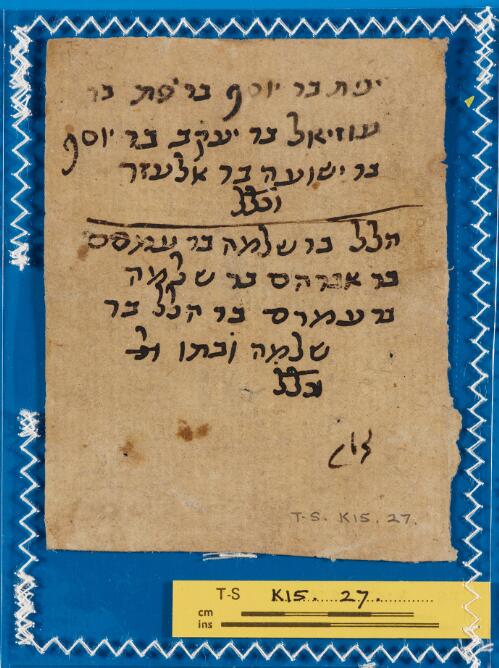 יפת בר יוסף בר יפת בר
עוזיאל בר יעקב בר יוסף
בר ישועה בר אלעזר
וכלל
הלל בר שלמה בר עמרם
בר אברהם בר שלמה
בר עמרם בר הלל בר
שלמה ובתו
וכלל
T-S. K15. 27.
T-S K15. 27.
cm
ins